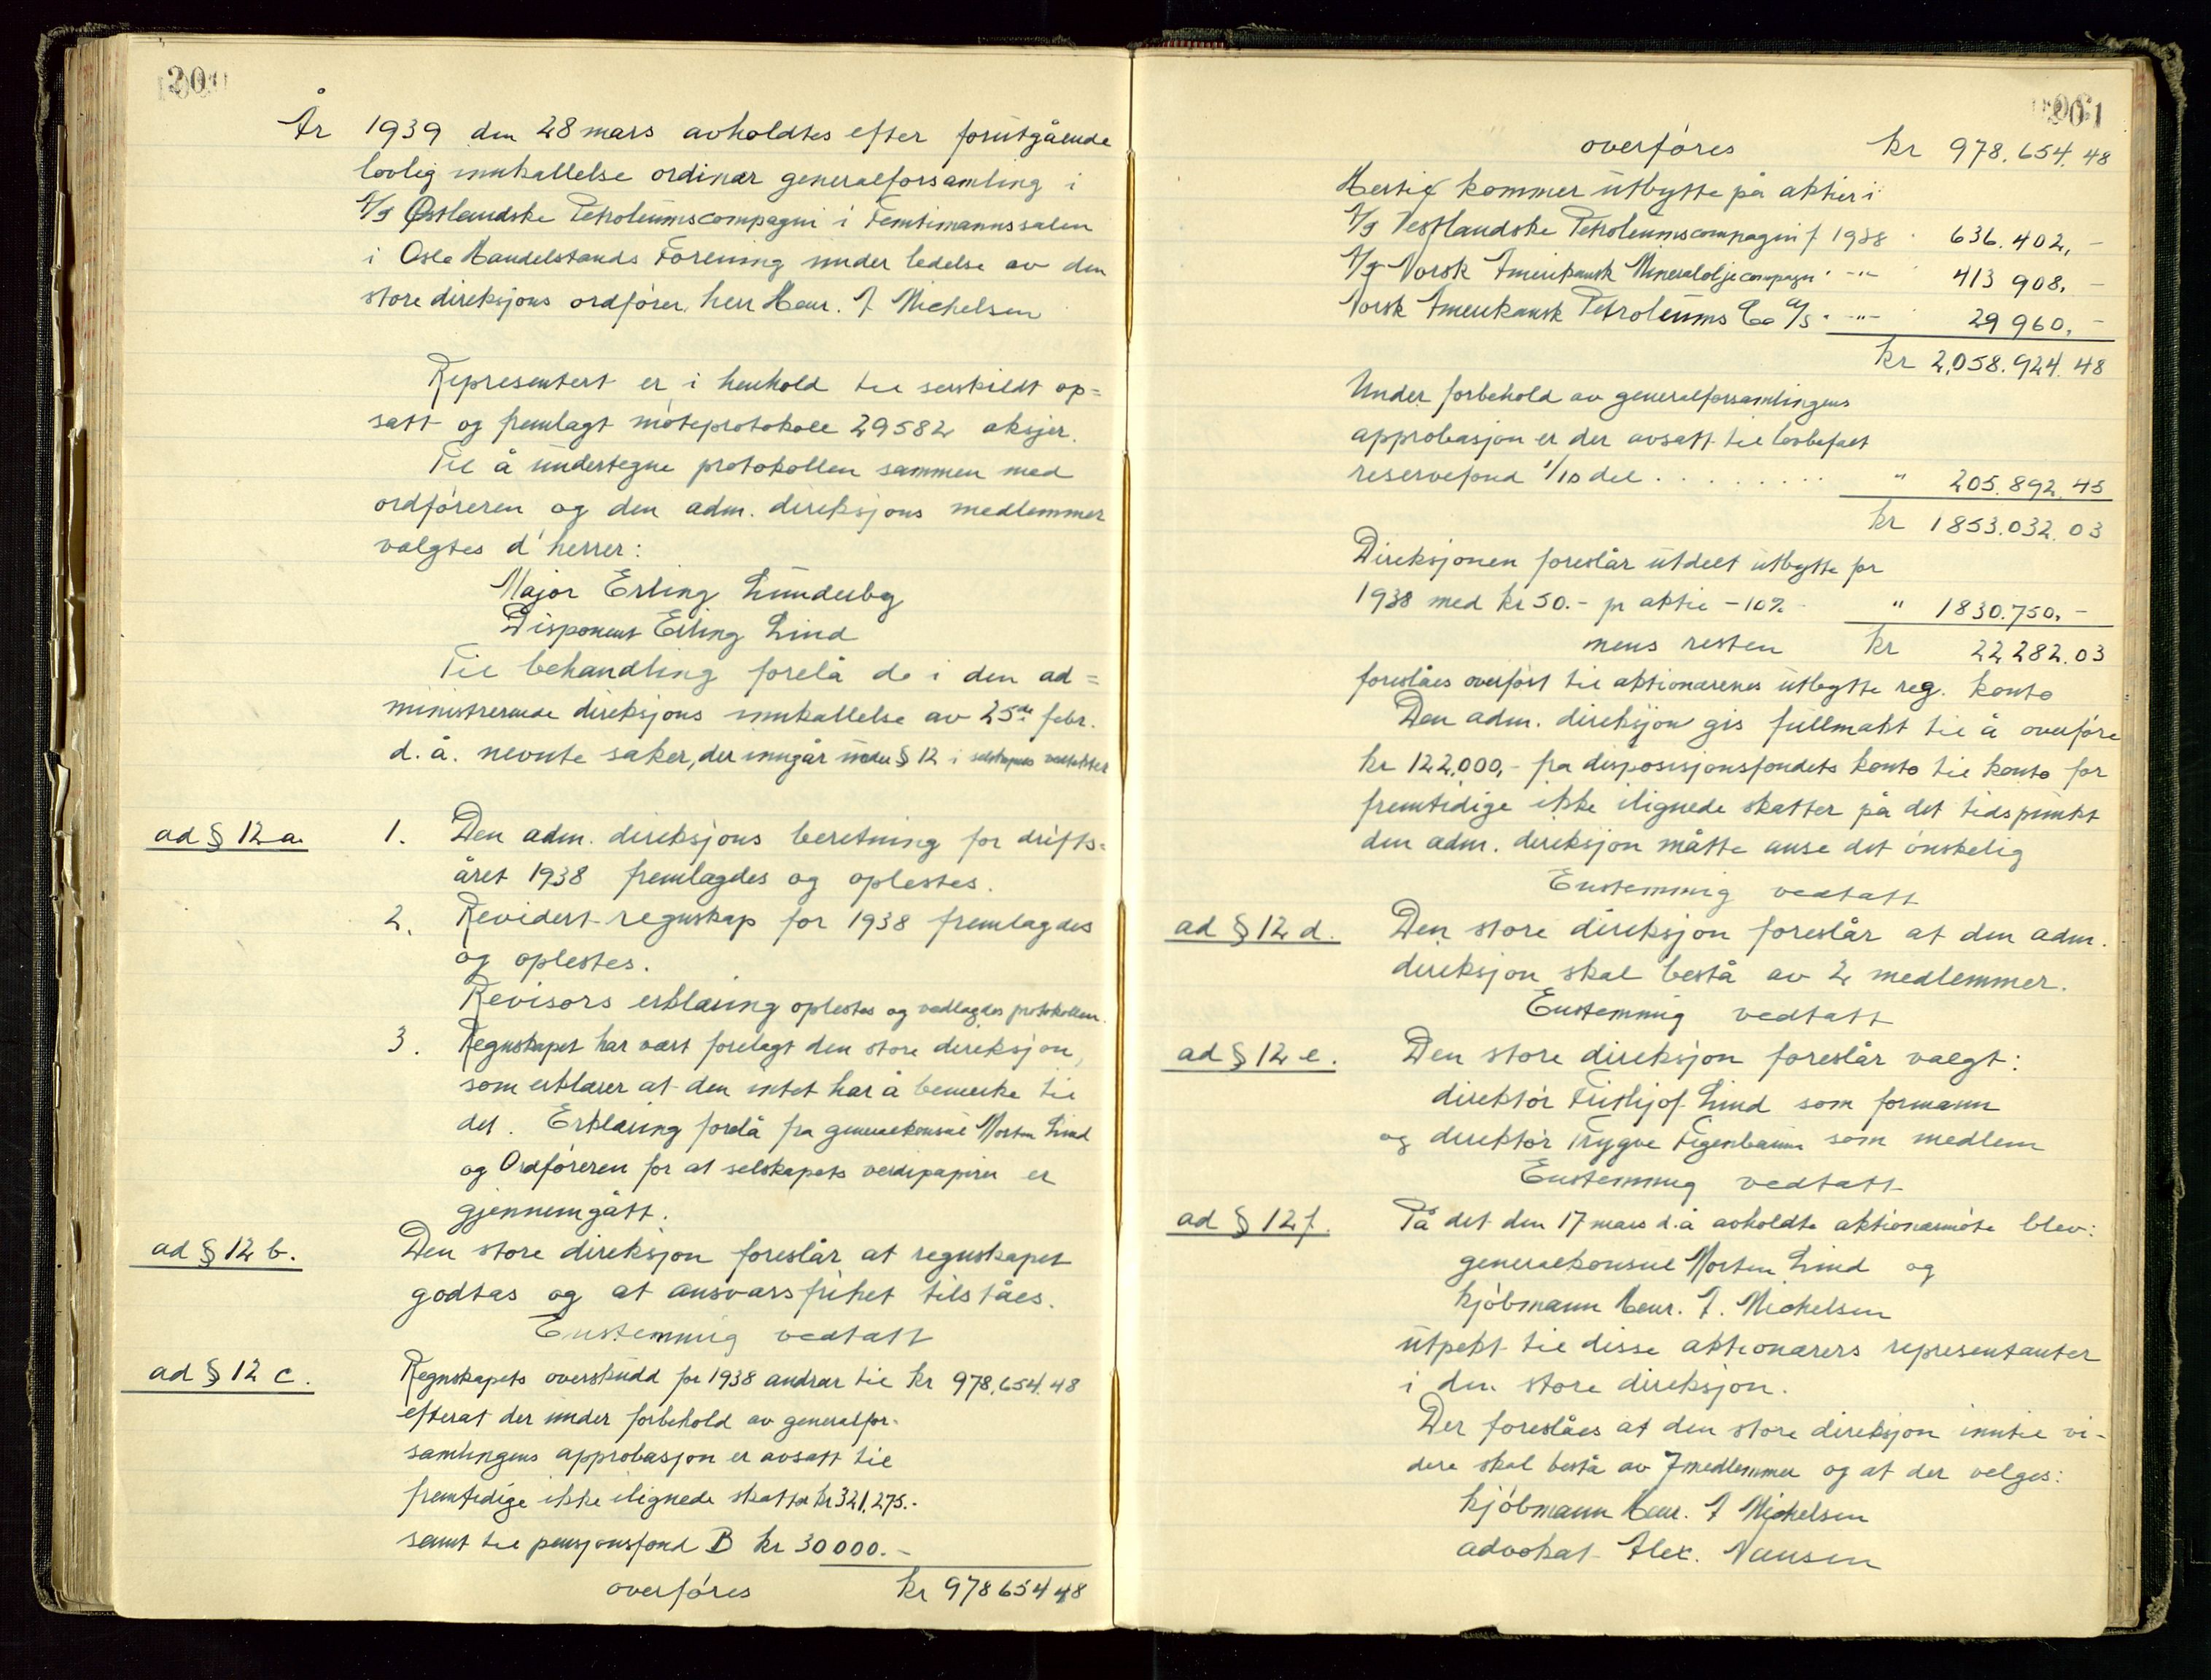 200
År 1939 den 28 mars avholdtes efter forutgående
lovlig innkallelse ordinær generalforsamling i
A/S Østlandske Petroleumscompagni i Femtimannssalen
i Oslo Handelstands Forening under ledelse av den
store direksjons ordfører, herr Henr. J Michelsen
Representert er i henhold til serskildt op=
satt og fremlagt møteprotokoll 29582 aksjer.
Til å undertegne protokollen sammen med
ordføreren og den adm. direksjons medlemmer
valgtes d'herrer:
Major Erling Lundesby
Disponent Erling Lind
Til behandling forelå de i den ad=
ministrerende direksjons innkallelse av 25de febr.
d.å. nevnte saker, der inngår under § 12 i selskapets vedtekter
ad § 12 a. 1. Den adm. direksjons beretning for drifts=
året 1938 fremlagdes og oplestes.
2. Revidert regnskap for 1938 fremlagdes
og oplestes.
Revisors erklæring oplestes og vedlagdes protokollen.
3. Regnskapet har vært forelagt den store direksjon,
som erklærer at den intet har å bemerke til
det. Erklæring forelå fra generalkonsul Morten Lind
og Ordføreren for at selskapets verdipapirer er
gjennemgått.
ad § 12 b. Den store direksjon foreslår at regnskapet
godtas og at ansvarsfrihet tilståes.
Enstemmig vedtatt
ad § 12 c. Regnskapets overskudd for 1938 andrar til kr 978,654.48
efterat der under forbehold av generalfor-
samlingens approbasjon er avsatt til
fremtidige ikke ilignede skatter kr 321,275.-
samt til pensjonsfond B kr 30000.-
overføres kr 978654 48
201
overføres kr 978.654.48
Hertil kommer utbytte på aktier i
A/S Vestlandske Petroleumscompagni f 1938 " 636.402,-
A/S Norsk Amerikansk Mineraloljecompagni " -"- 413 908,-
Norsk Amerikansk Petroleums Co A/S " -"- 29 960,-
kr 2,058.924.48
Under forbehold av generalforsamlingens
approbasjon er der avsatt til lovbefalt
reservefond 1/10 del . . . . . . . . . " 205.892.45
kr 1853.032.03
Direksjonen foreslår utdelt utbytte for
1938 med kr 50.- pr aktie - 10% " 1830.750,-
mens resten kr 22.282.03
foreslåes overført til aktionærenes utbytte reg. konto
Den adm. direksjon gis fullmakt til å overføre
kr 122,000,- fra disposisjonsfondets konto til konto for
fremtidige ikke ilignede skatter på det tidspunkt
den adm. direksjon måtte anse det ønskelig
Enstemmig vedtatt
ad § 12 d. Den store direksjon foreslår at den adm.
direksjon skal bestå av 2 medlemmer.
Enstemmig vedtatt
ad § 12 e. Den store direksjon foreslår valgt:
direktør Frithjof Lind som formann
og direktør Trygve Figenbaum som medlem
Enstemmig vedtatt
ad § 12 f. På det den 17 mars d.å avholdte aktionærmøte blev:
generalkonsul Morten Lind og
kjøbmann Henr. J. Michelsen
utpekt til disse aktionærers representanter
i den store direksjon.
Der foreslåes at den store direksjon inntil vi-
dere skal bestå av 7 medlemmer og at der velges:
kjøbmann Henr. J Michelsen
advokat Alex. Nansen